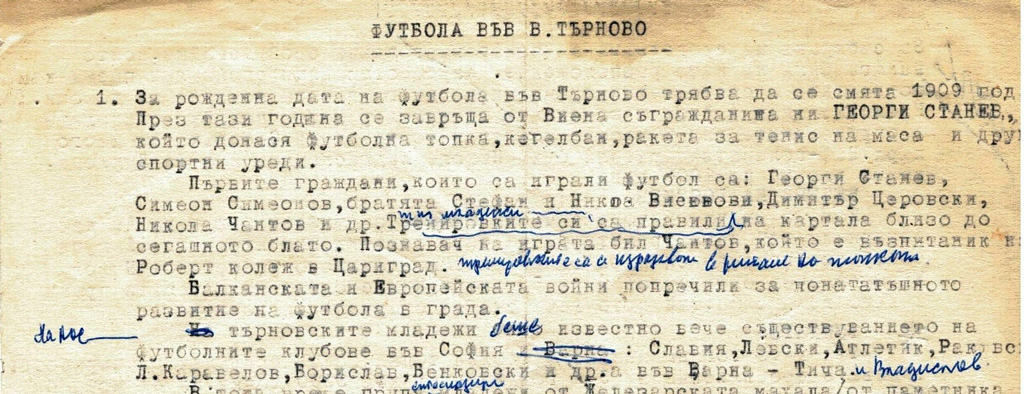 ФУТБОЛА ВЪВ В.ТЪРНОВО
1. За рожденна дата на футбола във Търново трябва да се смята 1909 год
През тази година се завръща от Виена съгражданина ни ГЕОРГИ СТАНЕВ,
който донася футболна топка,кегелбан,ракета за тенис на маса и дру
спортни уреди.
Първите граждани,които са играли футбол са: Георги Станев,
Симеон Симеонов,братята Стефан и Никола Висовови,Димитър Церовски,
младежи
Никола Чантов и др.Тренировките си са правили на картала близо до
сегашното блато. Познавач на играта бил Чантов,който е възпитаник н
Роберт колеж в Цариград. тренировките са се изразявали в ритане на топката.
Балканската и Европейската войни попречили за понататъшното
развитие на футбола в града.
На търновските младежи беше известно вече съществуванието на
футболните клубове във София и Варна : Славия,Левски,Атлетик,Раковс
Л.Каравелов,Борислав,Бенковски и др.а във Варна - Тича и Владислав.
В това време група от Железарската махала/от паметника